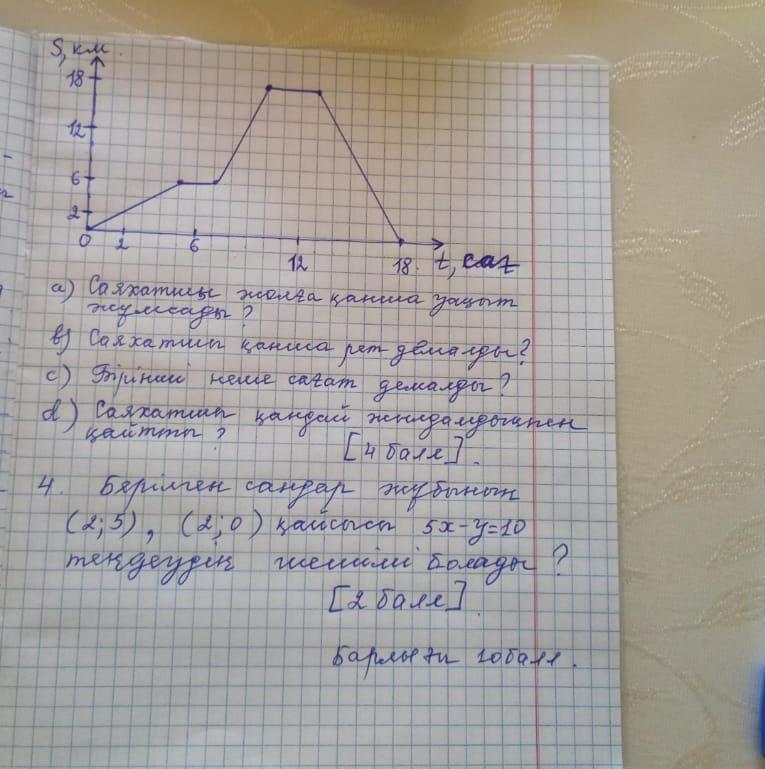 S, км.
18
12
6
2
0 2 6 12 18. t, сағ
a) Саяхатшы жолға қанша уақыт
жұмсады?
b) Саяхатшы қанша рет демалды?
c) Бірінші неше сағат демалды?
d) Саяхатшы қандай жылдамдықпен
қайтты?
[4 балл].
4. Берілген сандар жұбының
(2;5), (2;0) қайсысы 5x-y=10
теңдеудің шешімі болады?
[2 балл].
Барлығы 10балл.